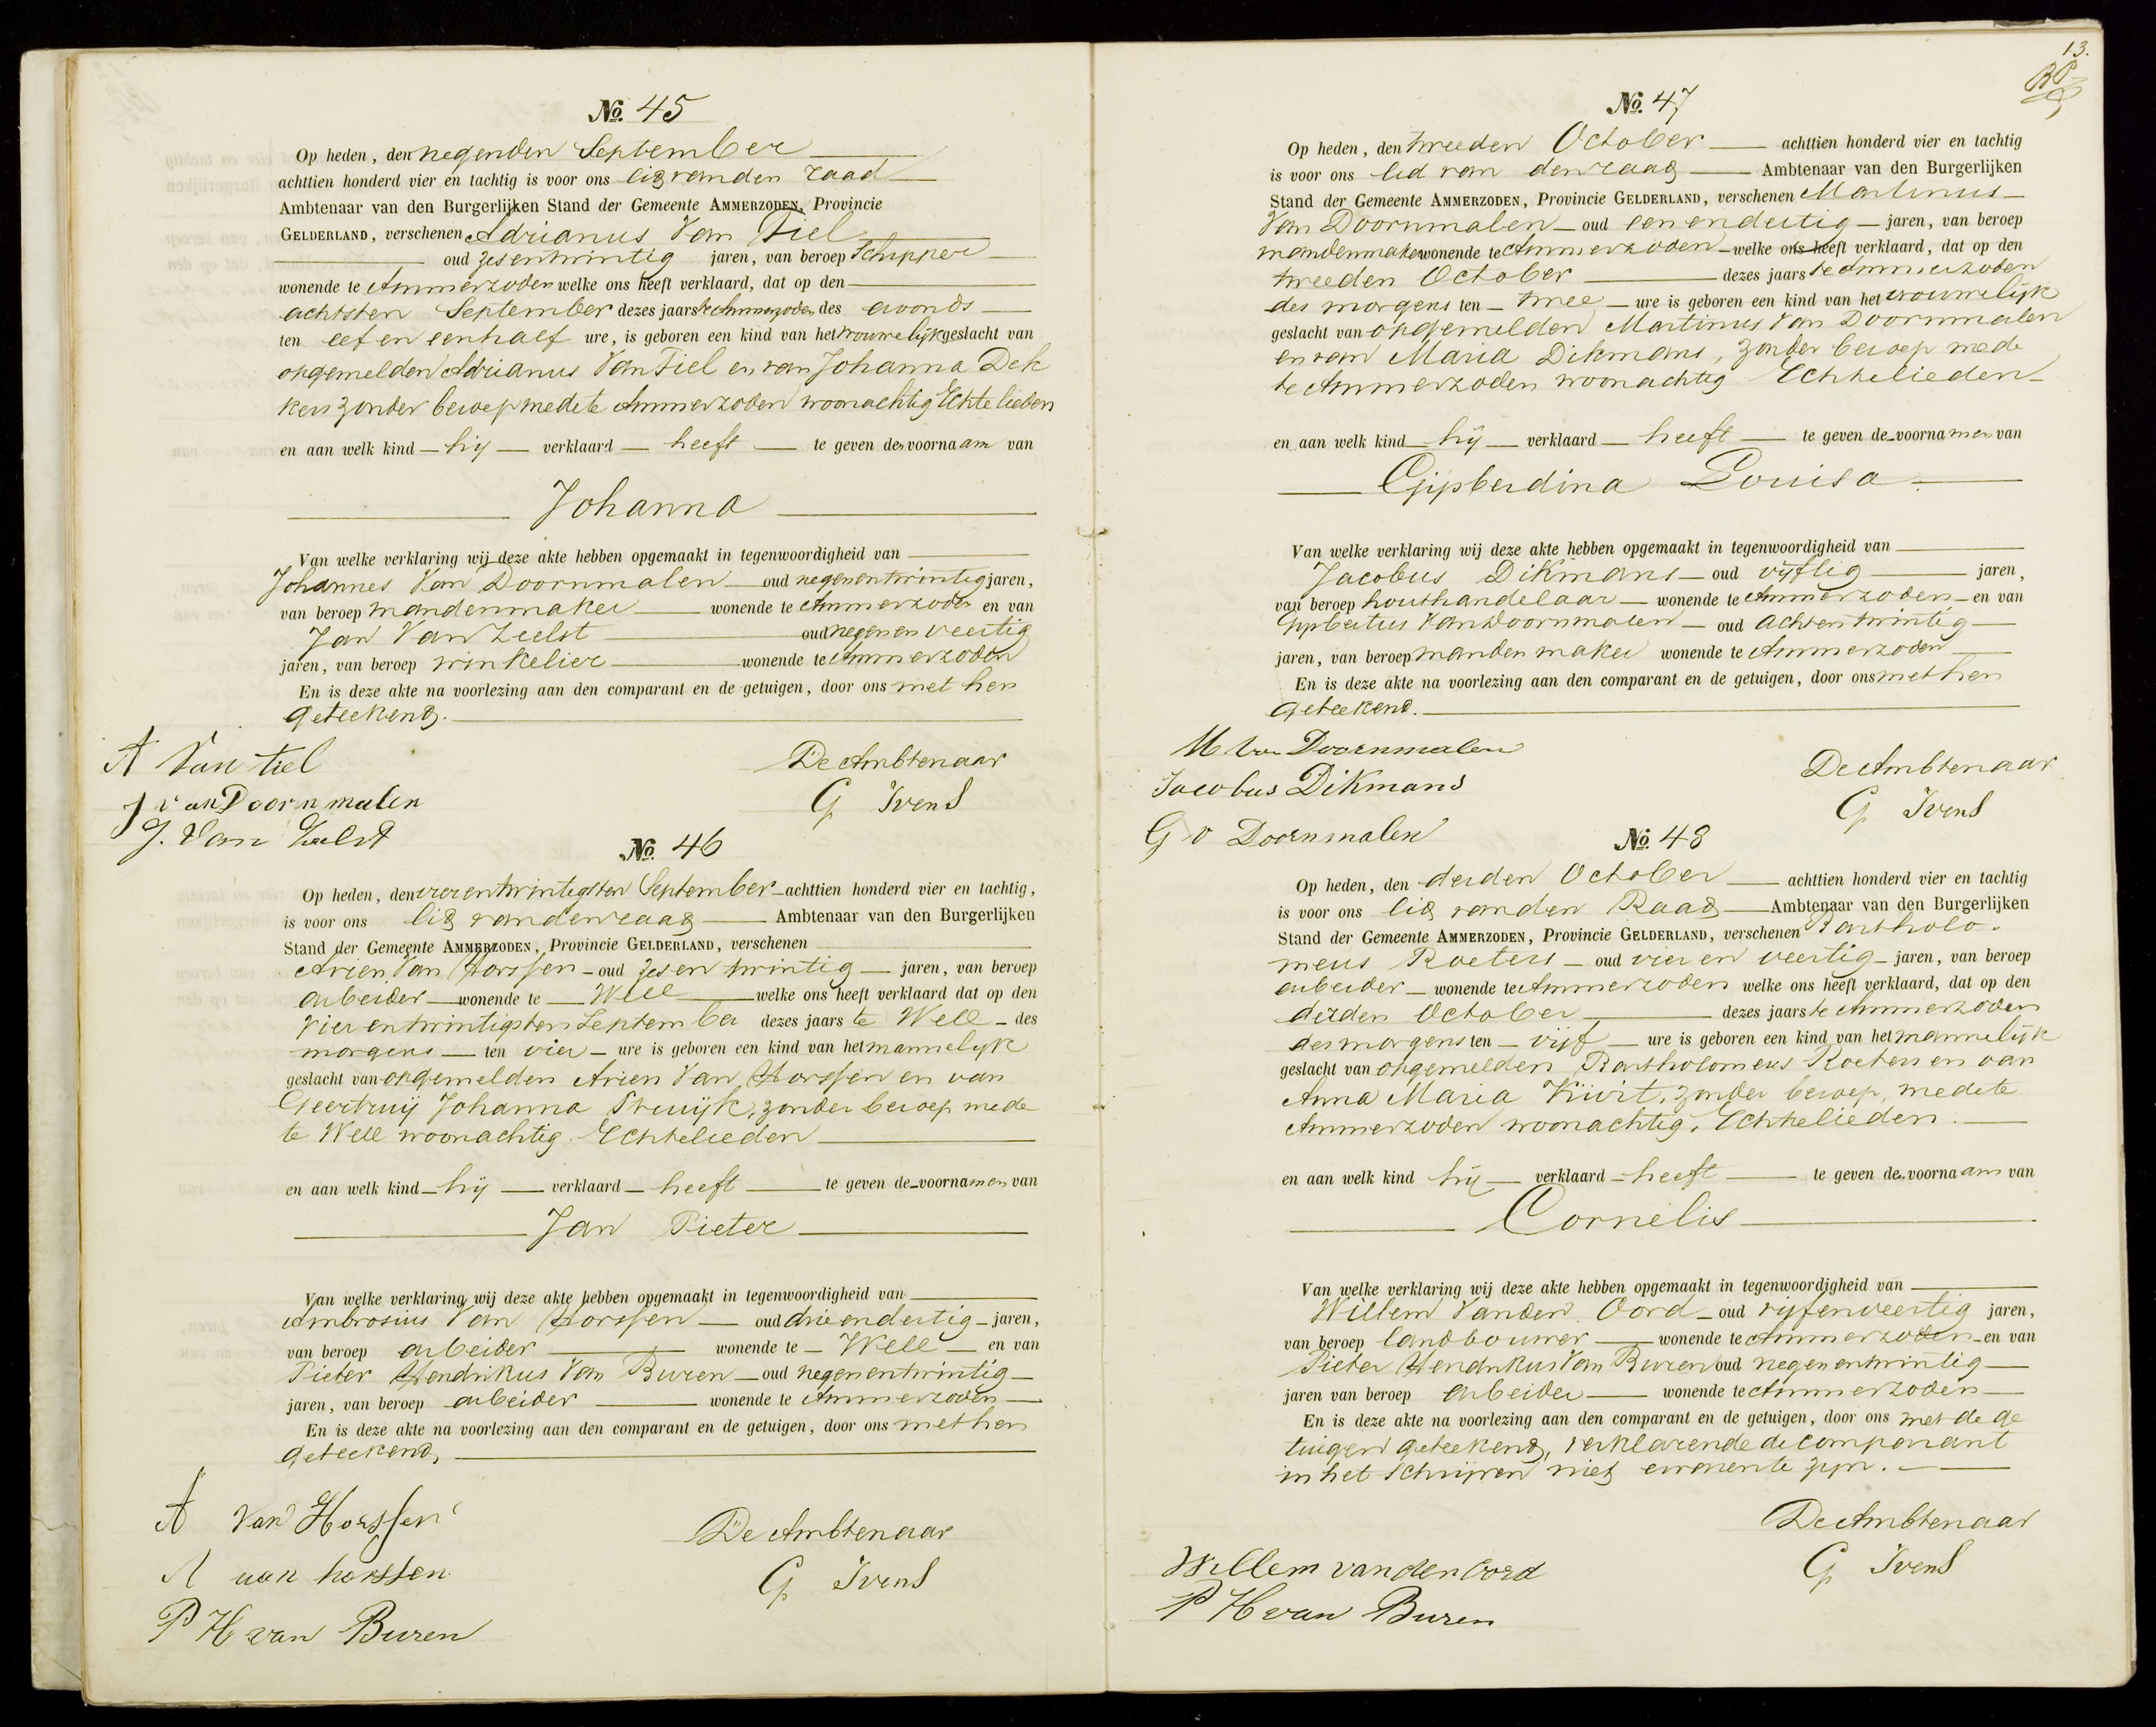 No. 45
Op heden, den negenden September
achttien honderd vier en tachtig is voor ons lid van den raad
Ambtenaar van den Burgerlijken Stand der Gemeente AMMERZODEN, Provincie
GELDERLAND, verschenen Adrianus Van Tiel
oud zesentwintig jaren, van beroep Schipper
wonende te Ammerzoden welke ons heeft verklaard, dat op den
achtsten September dezes jaars te Ammerzoden des avonds
ten elf en eenhalf ure, is geboren een kind van het vrouwelijk geslacht van
opgemelden Adrianus Van Tiel en van Johanna Dek
kers zonder beroep mede te Ammerzoden woonachtig Echtelieden
en aan welk kind hij verklaard heeft te geven den voornaam van
Johanna
Van welke verklaring wij deze akte hebben opgemaakt in tegenwoordigheid van
Johannes Van Doornmalen oud negenentwintig jaren,
van beroep mandenmaker wonende te Ammerzoden en van
Jan Van Zeelst oud negenenveertig
jaren, van beroep winkelier wonende te Ammerzoden
En is deze akte na voorlezing aan den comparant en de getuigen, door ons met hen
geteekend.
A Van tiel
De Ambtenaar
J van Doornmalen
G Ivens
J. Van Zeelst
No. 46
Op heden, den vierentwintigsten September achttien honderd vier en tachtig,
is voor ons lid van den raad Ambtenaar van den Burgerlijken
Stand der Gemeente AMMERZODEN, Provincie GELDERLAND, verschenen
Arien Van Horssen oud zesentwintig jaren, van beroep
arbeider wonende te Well welke ons heeft verklaard dat op den
vierentwintigsten September dezes jaars te Well des
morgens ten vier ure is geboren een kind van het mannelijk
geslacht van opgemelden Arien Van Horssen en van
Geertruij Johanna Struijk, zonder beroep mede
te Well woonachtig Echtelieden
en aan welk kind hij verklaard heeft te geven de voornamen van
Jan Pieter
Van welke verklaring wij deze akte hebben opgemaakt in tegenwoordigheid van
Ambrosius Van Horssen oud drieendertig jaren,
van beroep arbeider wonende te Well en van
Pieter Hendrikus Van Buren oud negenentwintig
jaren, van beroep arbeider wonende te Ammerzoden
En is deze akte na voorlezing aan den comparant en de getuigen, door ons met hen
geteekend,
A van Horssen
De Ambtenaar
A van horssen
G Ivens
P H van Buren
13.
No. 47
Op heden, den tweeden October achttien honderd vier en tachtig
is voor ons lid van den raad Ambtenaar van den Burgerlijken
Stand der Gemeente AMMERZODEN, Provincie GELDERLAND, verschenen Martinus
Van Doornmalen oud eenendertig jaren, van beroep
mandenmaker wonende te Ammerzoden welke ons heeft verklaard, dat op den
tweeden October dezes jaars te Ammerzoden
des morgens ten twee ure is geboren een kind van het vrouwelijk
geslacht van opgemelden Martinus Van Doornmalen
en van Maria Dikmans, zonder beroep mede
te Ammerzoden woonachtig Echtelieden
en aan welk kind hij verklaard heeft te geven de voornamen van
Gijsberdina Louisa
Van welke verklaring wij deze akte hebben opgemaakt in tegenwoordigheid van
Jacobus Dikmans oud vijftig jaren,
van beroep houthandelaar wonende te Ammerzoden en van
Gijsbertus Van Doornmalen oud achtentwintig
jaren, van beroep mandenmaker wonende te Ammerzoden
En is deze akte na voorlezing aan den comparant en de getuigen, door ons met hen
geteekend.
M van Doornmalen
De Ambtenaar
Jacobus Dikmans
G Ivens
G v Doornmalen
No. 48
Op heden, den derden October achttien honderd vier en tachtig
is voor ons lid van den Raad Ambtenaar van den Burgerlijken
Stand der Gemeente AMMERZODEN, Provincie GELDERLAND, verschenen Bartholo-
meus Roeters oud vier en veertig jaren, van beroep
arbeider wonende te Ammerzoden welke ons heeft verklaard, dat op den
derden October dezes jaars te Ammerzoden
des morgens ten vijf ure is geboren een kind van het mannelijk
geslacht van opgemelden Bartholomeus Roeters en van
Anna Maria Kivit, zonder beroep, mede te
Ammerzoden woonachtig, Echtelieden.
en aan welk kind hij verklaard heeft te geven den voornaam van
Cornelis
Van welke verklaring wij deze akte hebben opgemaakt in tegenwoordigheid van
Willem Van den Oord oud vijfenveertig jaren,
van beroep landbouwer wonende te Ammerzoden en van
Pieter Hendrikus Van Buren oud negenentwintig
jaren van beroep arbeider wonende te Ammerzoden
En is deze akte na voorlezing aan den comparant en de getuigen, door ons met de ge
tuigen geteekend, verklarende de comparant
in het schrijven niet ervaren te zijn.
De Ambtenaar
Willem van den Oord
G Ivens
P H van Buren